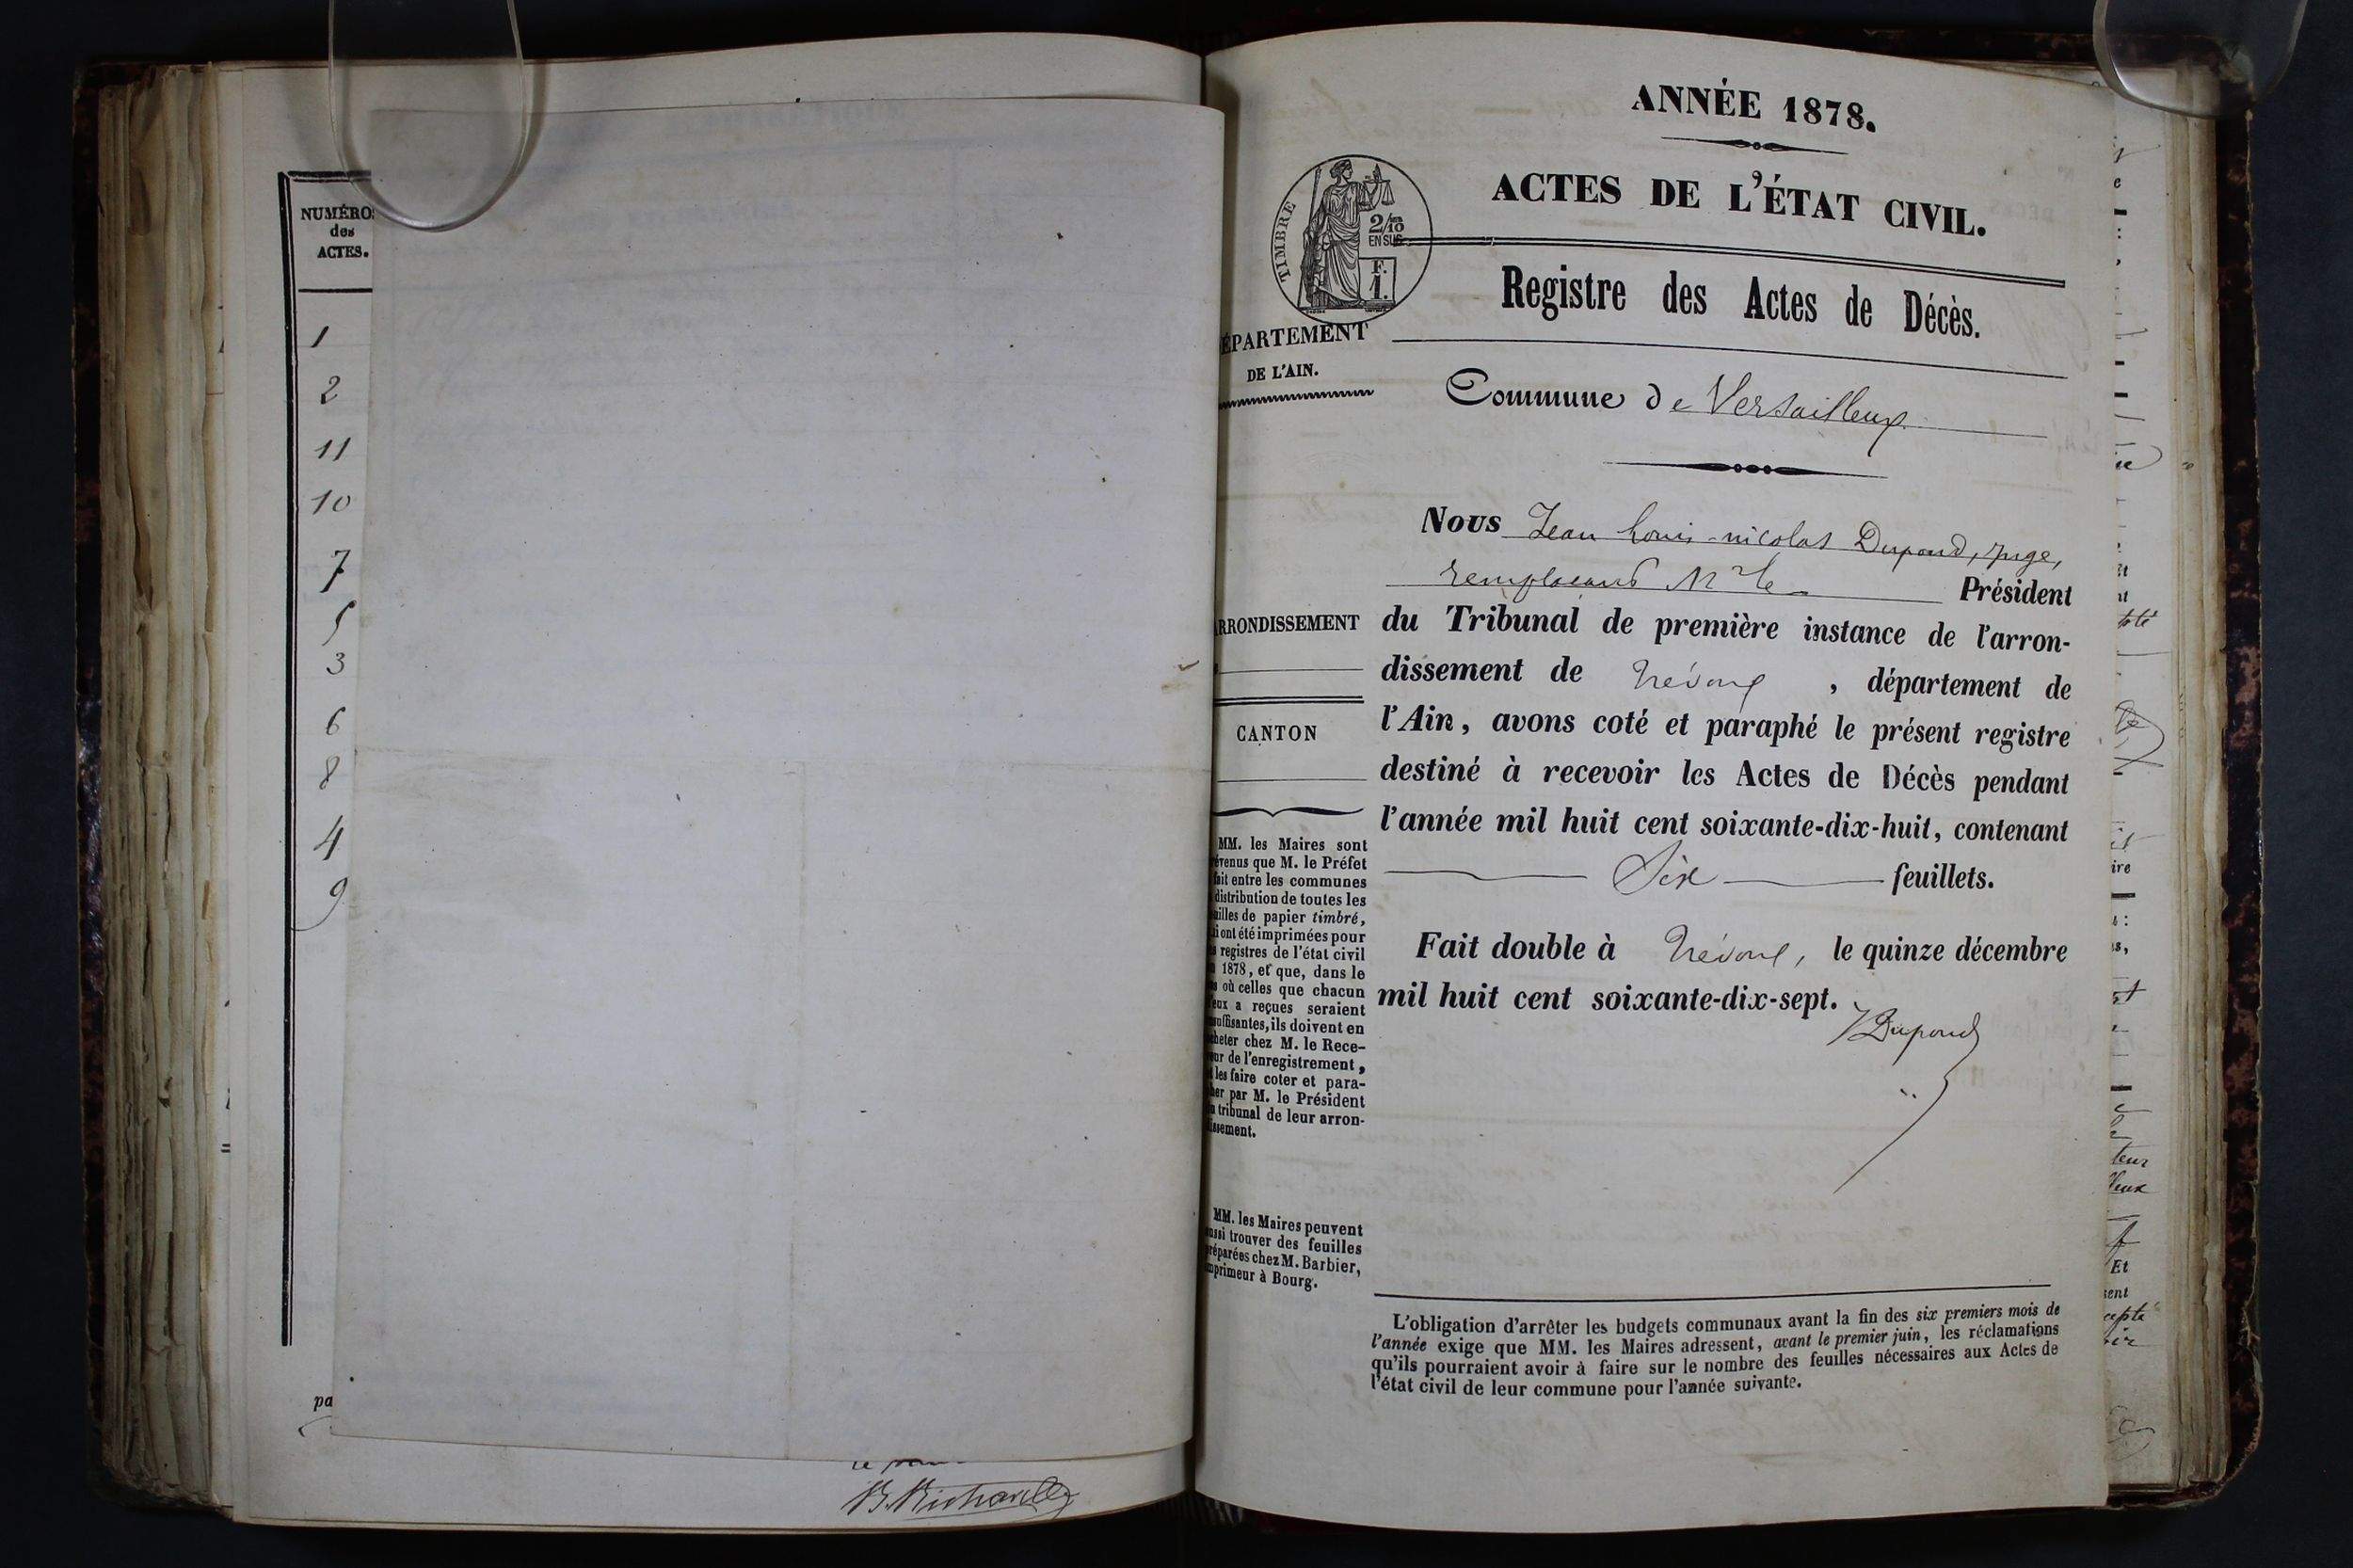 NUMÉROS
des
ACTES.
1
2
11
10
7
5
3
6
8
4
9
pa
B. Richard
ANNÉE 1878.
ACTES DE L'ÉTAT CIVIL.
TIMBRE
2/10
EN SUS
F.
1.
Registre des Actes de Décès.
ÉPARTEMENT
DE L'AIN.
Commune de Versailleux
Nous Jean Louis-nicolas Dupond, Juge,
remplacant Mr le Président
du Tribunal de première instance de l'arron-
dissement de Trévoux, département de
l'Ain, avons coté et paraphé le présent registre
destiné à recevoir les Actes de Décès pendant
l'année mil huit cent soixante-dix-huit, contenant
Six feuillets.
Fait double à Trévoux, le quinze décembre
mil huit cent soixante-dix-sept.
Dupond
RRONDISSEMENT
CANTON
MM. les Maires sont
évenus que M. le Préfet
fait entre les communes
distribution de toutes les
uilles de papier timbré,
i ont été imprimées pour
s registres de l'état civil
1878, et que, dans le
s où celles que chacun
eux a reçues seraient
suffisantes, ils doivent en
cheter chez M. le Rece-
eur de l'enregistrement,
les faire coter et para-
her par M. le Président
u tribunal de leur arron-
issement.
MM. les Maires peuvent
ussi trouver des feuilles
réparées chez M. Barbier,
mprimeur à Bourg.
L'obligation d'arrêter les budgets communaux avant la fin des six premiers mois de
l'année exige que MM. les Maires adressent, avant le premier juin, les réclamations
qu'ils pourraient avoir à faire sur le nombre des feuilles nécessaires aux Actes de
l'état civil de leur commune pour l'année suivante.